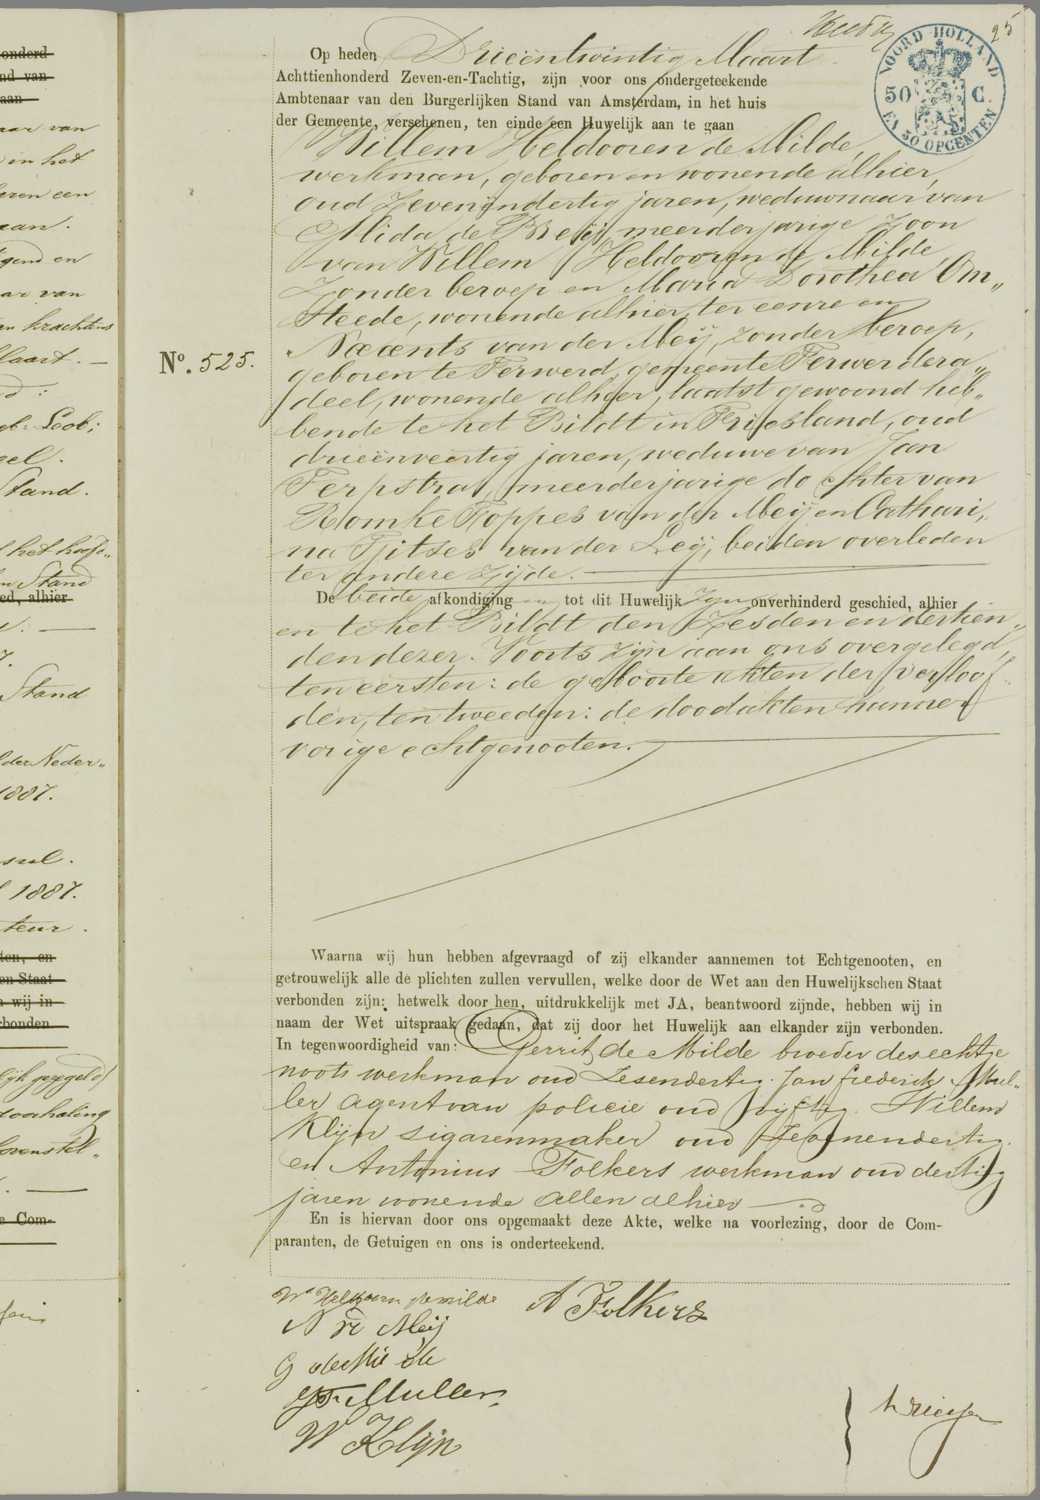 25
NOORD HOLLAND
50 C.
EN 50 OPCENTEN
Op heden Drieëntwintig Maart
Achttienhonderd Zeven-en-Tachtig, zijn voor ons ondergeteekende
Ambtenaar van den Burgerlijken Stand van Amsterdam, in het huis
der Gemeente, verschenen, ten einde een Huwelijk aan te gaan
Willem Heldooren de Milde,
werkman, geboren en wonende alhier,
oud Zevenendertig jaren, weduwnaar van
Alida de Beij, meerderjarige Zoon
van Willem Heldooren de Milde,
Zonder beroep en Maria Dorothea Om„
steede, wonende alhier, ter eenre en
No. 525.
Nææents van der Meij, zonder beroep,
geboren te Ferwerd, gemeente Ferwerdera„
deel, wonende alhier, laatst gewoond heb„
bende te het Bildt in Friesland, oud
drieënveertig jaren, weduwe van Jan
Terpstra, meerderjarige dochter van
Romke Foppes van der Meij en Cathari„
na Tjitses van der Leij, beiden overleden
ter andere zijde.
De beide afkondigingen tot dit Huwelijk Zijn onverhinderd geschied, alhier
en te het Bildt den Zesden en dertien„
den dezer. Voorts zijn aan ons overgelegd,
ten eersten: de geboorte akten der verloof„
den, ten tweeden: de doodakten hunner
vorige echtgenooten.
Waarna wij hun hebben afgevraagd of zij elkander aannemen tot Echtgenooten, en
getrouwelijk alle de plichten zullen vervullen, welke door de Wet aan den Huwelijkschen Staat
verbonden zijn; hetwelk door hen, uitdrukkelijk met JA, beantwoord zijnde, hebben wij in
naam der Wet uitspraak gedaan, dat zij door het Huwelijk aan elkander zijn verbonden.
In tegenwoordigheid van: Gerrit de Milde broeder des echtge
noots werkman oud Zesendertig. Jan Frederik Mul„
ler agent van policie oud vijftig. Willem
Klijn sigarenmaker oud Zevenendertig.
en Antonius Folkers werkman oud dertig
jaren wonende allen alhier
En is hiervan door ons opgemaakt deze Akte, welke na voorlezing, door de Com-
paranten, de Getuigen en ons is onderteekend.
W Heldooren de milde
A Folkers
N vd Meij
G de Milde
JF Muller
W Klijn